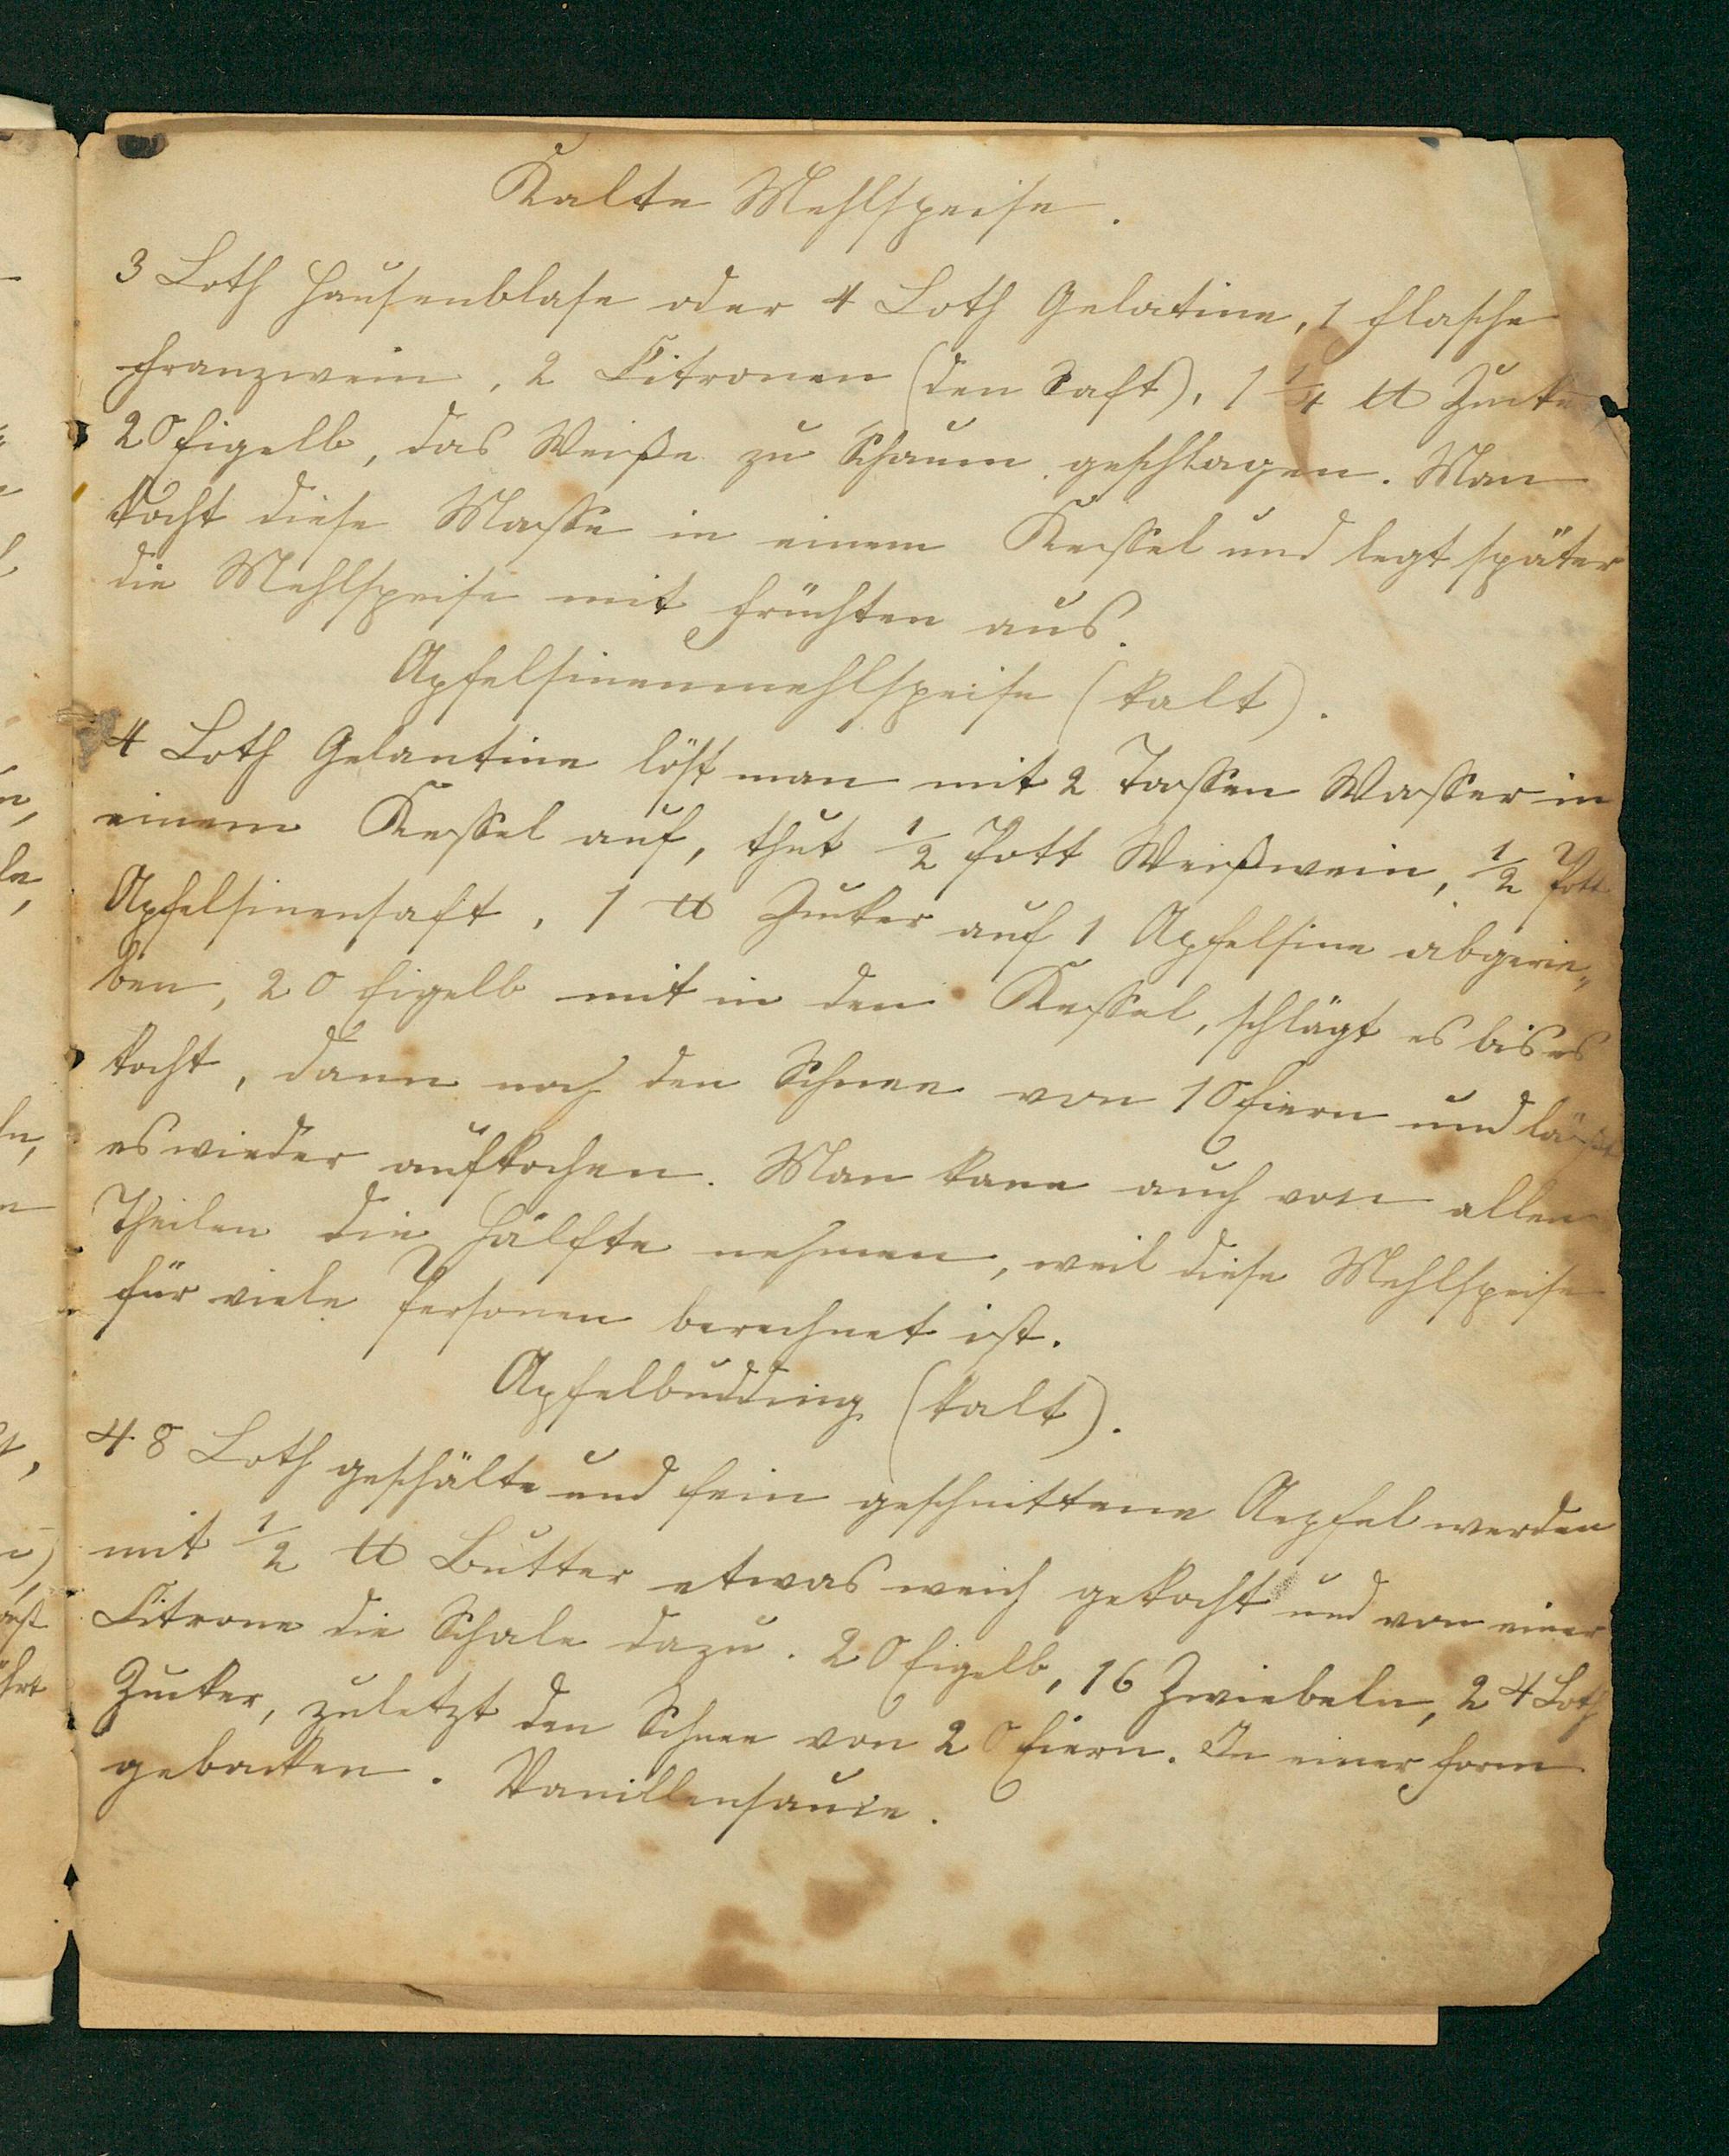 Kalte Mehlspeise.
3 Loth Hausenblase oder 4 Loth Gelatine, 1 Flasche
Franzwein, 2 Citronen (den Saft), 1 1/4 ℔ Zucke
20 Eigelb, das Weiße zu Schaum geschlagen. Man
kocht diese Masse in einem Kessel und legt später
die Mehlspeise mit Früchten aus.
Apfelsinenmehlspeise (kalt).
4 Loth Gelantine löst man mit 2 Tassen Wasser in
einem Kessel auf, thut 1/2 Pott Weißwein, 1/2 Pott
Apfelsinensaft, 1 ℔ Zucker auf 1 Apfelsine abgerie„
ben, 20 Eigelb mit in den Kessel, schlägt es bis es
kocht, dann noch den Schnee von 10 Eiern und läßt
es wieder aufkochen. Man kann auch von allen
Theilen die Hälfte nehmen, weil diese Mehlspeise
für viele Personen berechnet ist.
Apfelbudding (kalt).
48 Loth geschälte und fein geschnittene Aepfel werden
mit 1/2 ℔ Butter etwas weich gekocht und von einer
Citrone die Schale dazu. 20 Eigelb, 16 Zwiebeln, 24 Loth
Zucker, zuletzt den Schnee von 20 Eiern. In einer Form
gebacken. Vanillensauce.